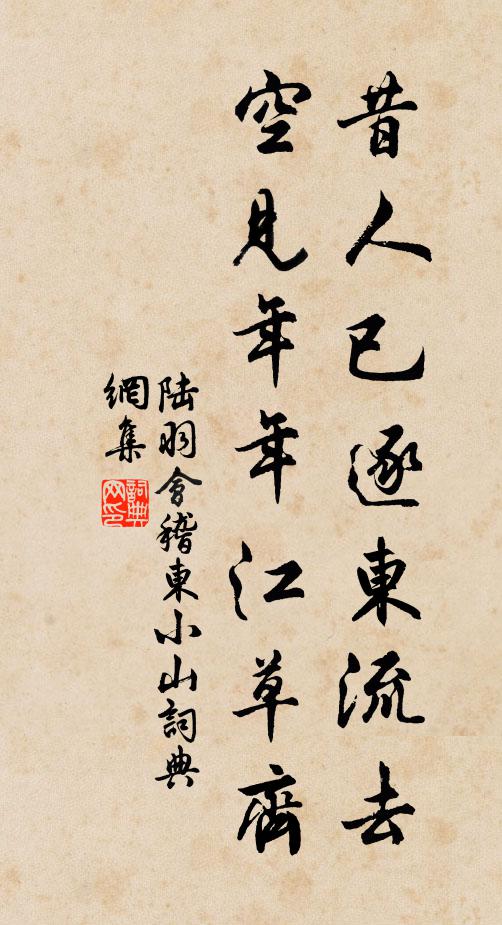 昔人已逐東流去
空見年年江草齊
陸羽會稽東小山詞典
網集
詞典
網印